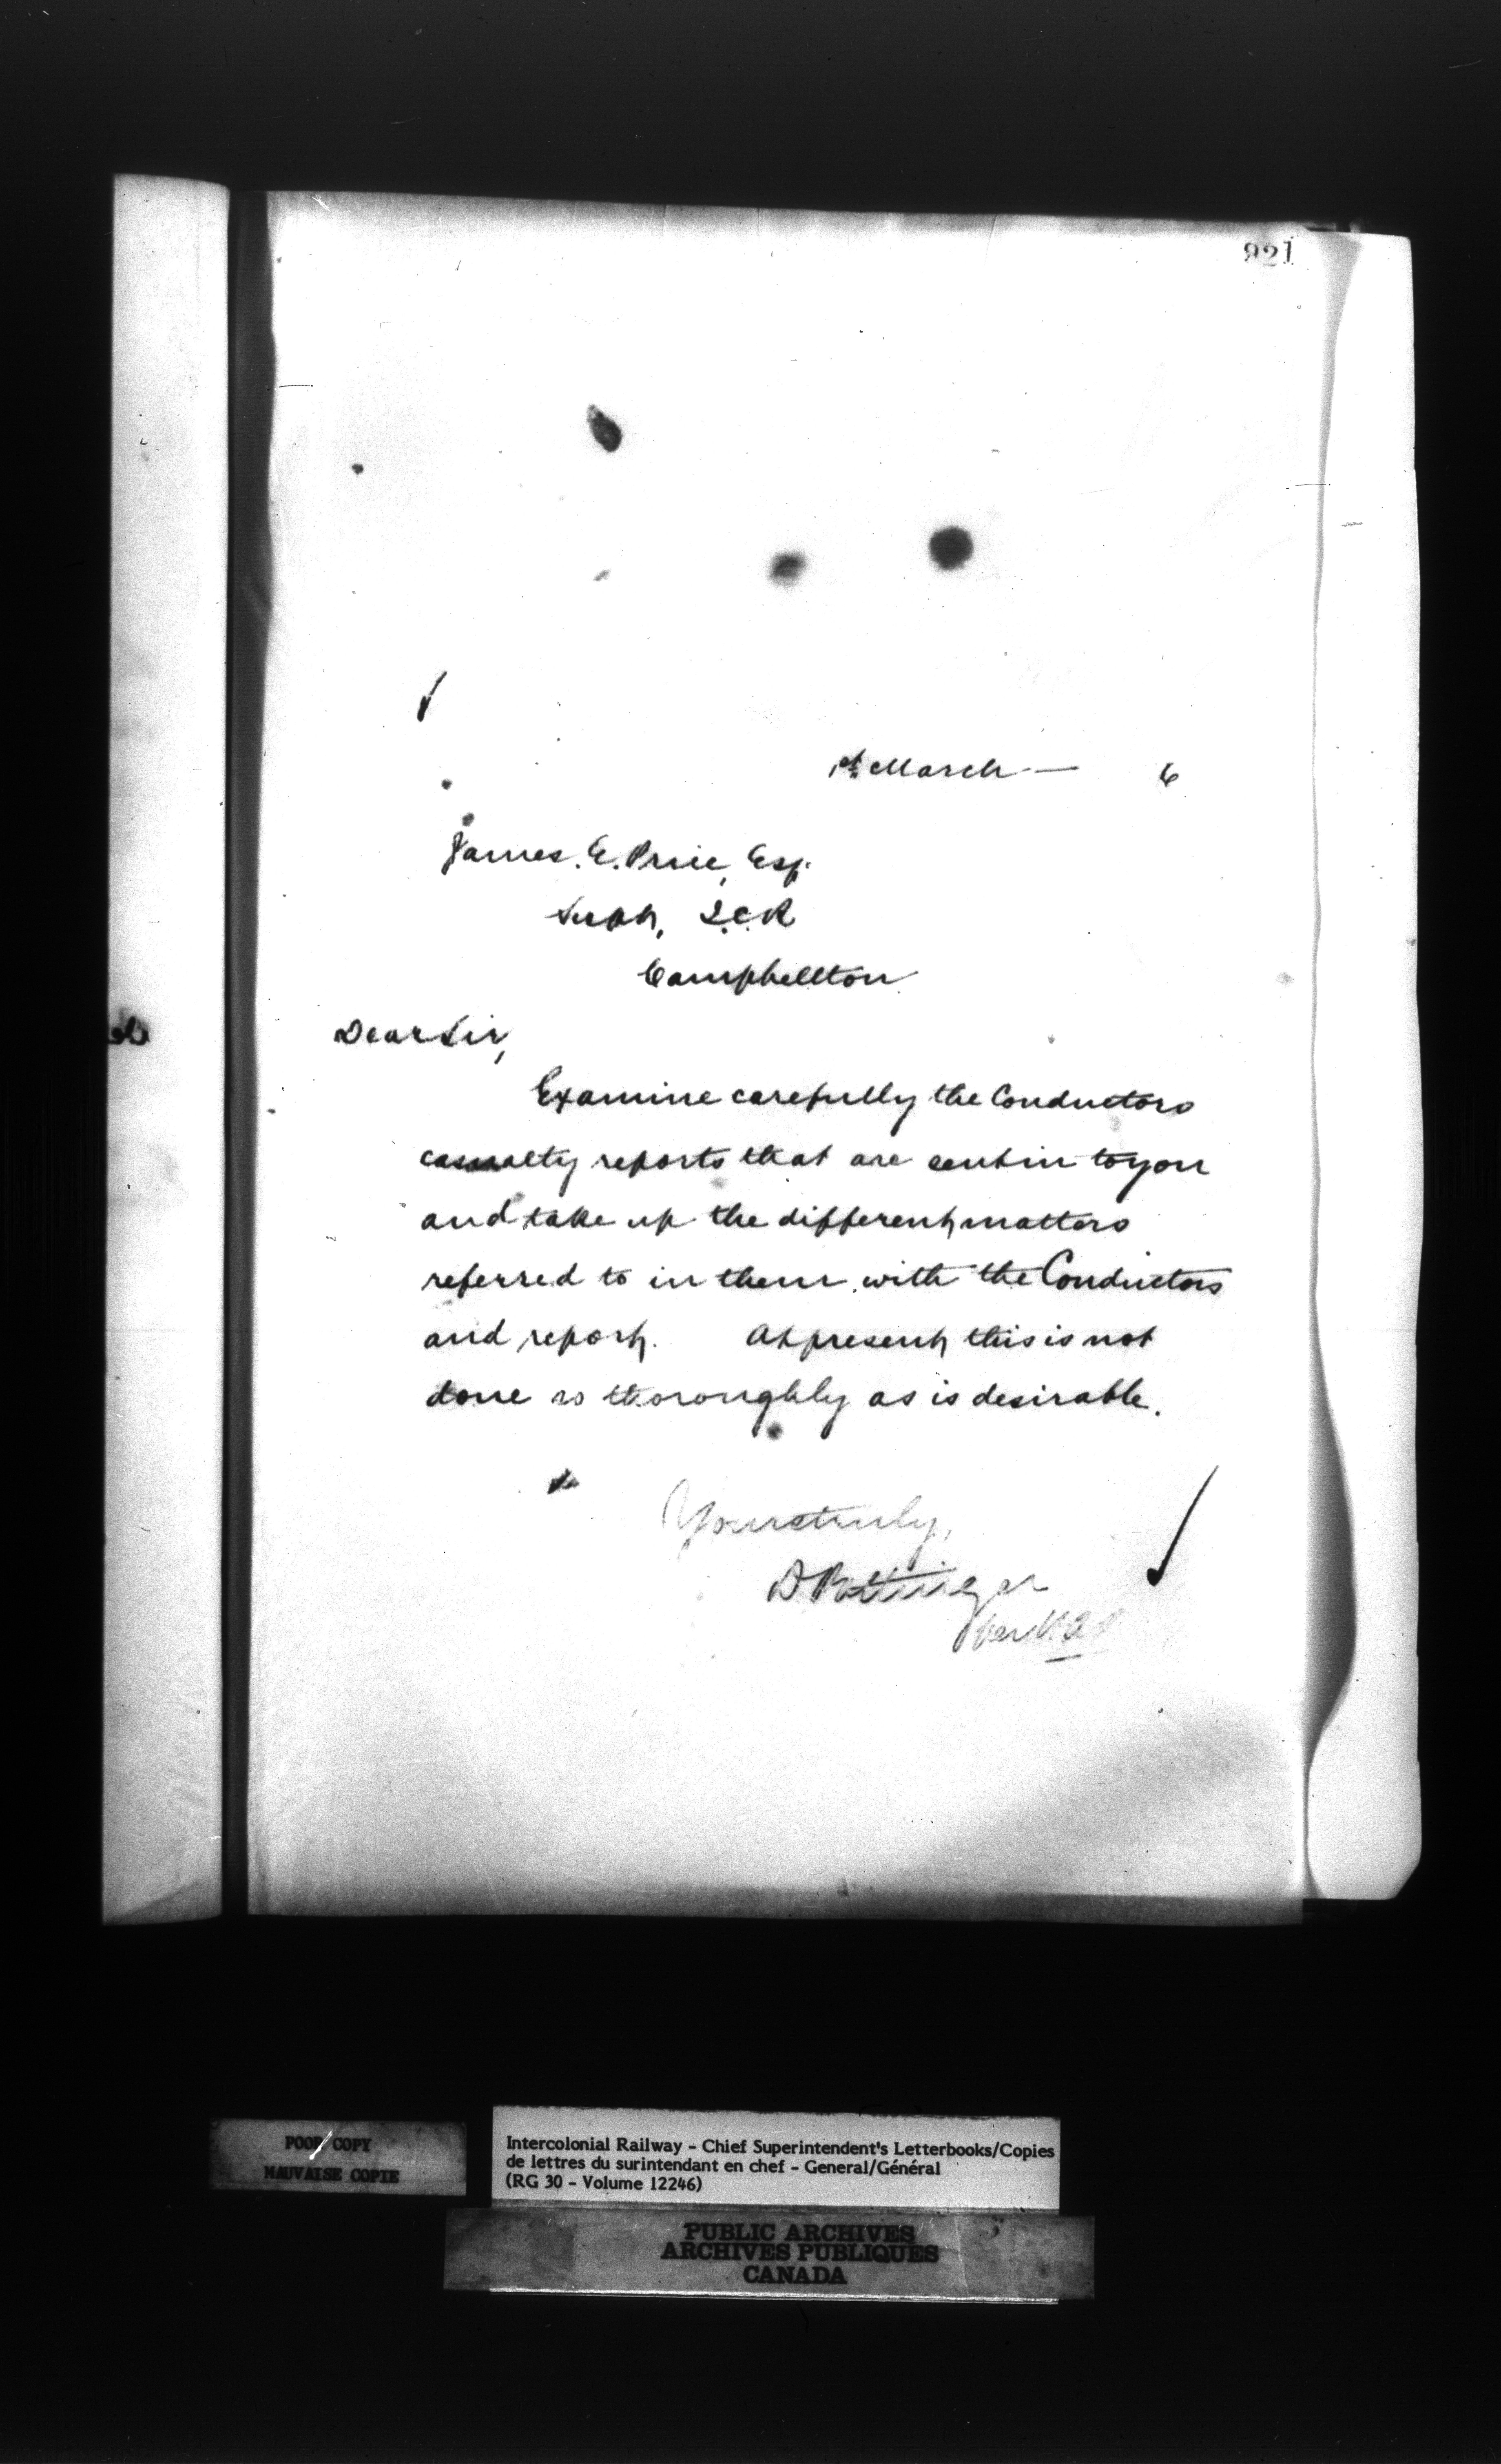 921
1st March — 6
James. E. Price, Esq.
Supt, I.C.R
Campbellton
Dear Sir,
Examine carefully the Conductors
casualty reports that are sent in to you
and take up the different matters
referred to in them with the Conductors
and report. At present this is not
done so thoroughly as is desirable.
Yours truly,
D Pottinger
per
POOR COPY
MAUVAISE COPIE
Intercolonial Railway - Chief Superintendent's Letterbooks/Copies
de lettres du surintendant en chef - General/Général
(RG 30 - Volume 12246)
PUBLIC ARCHIVES
ARCHIVES PUBLIQUES
CANADA